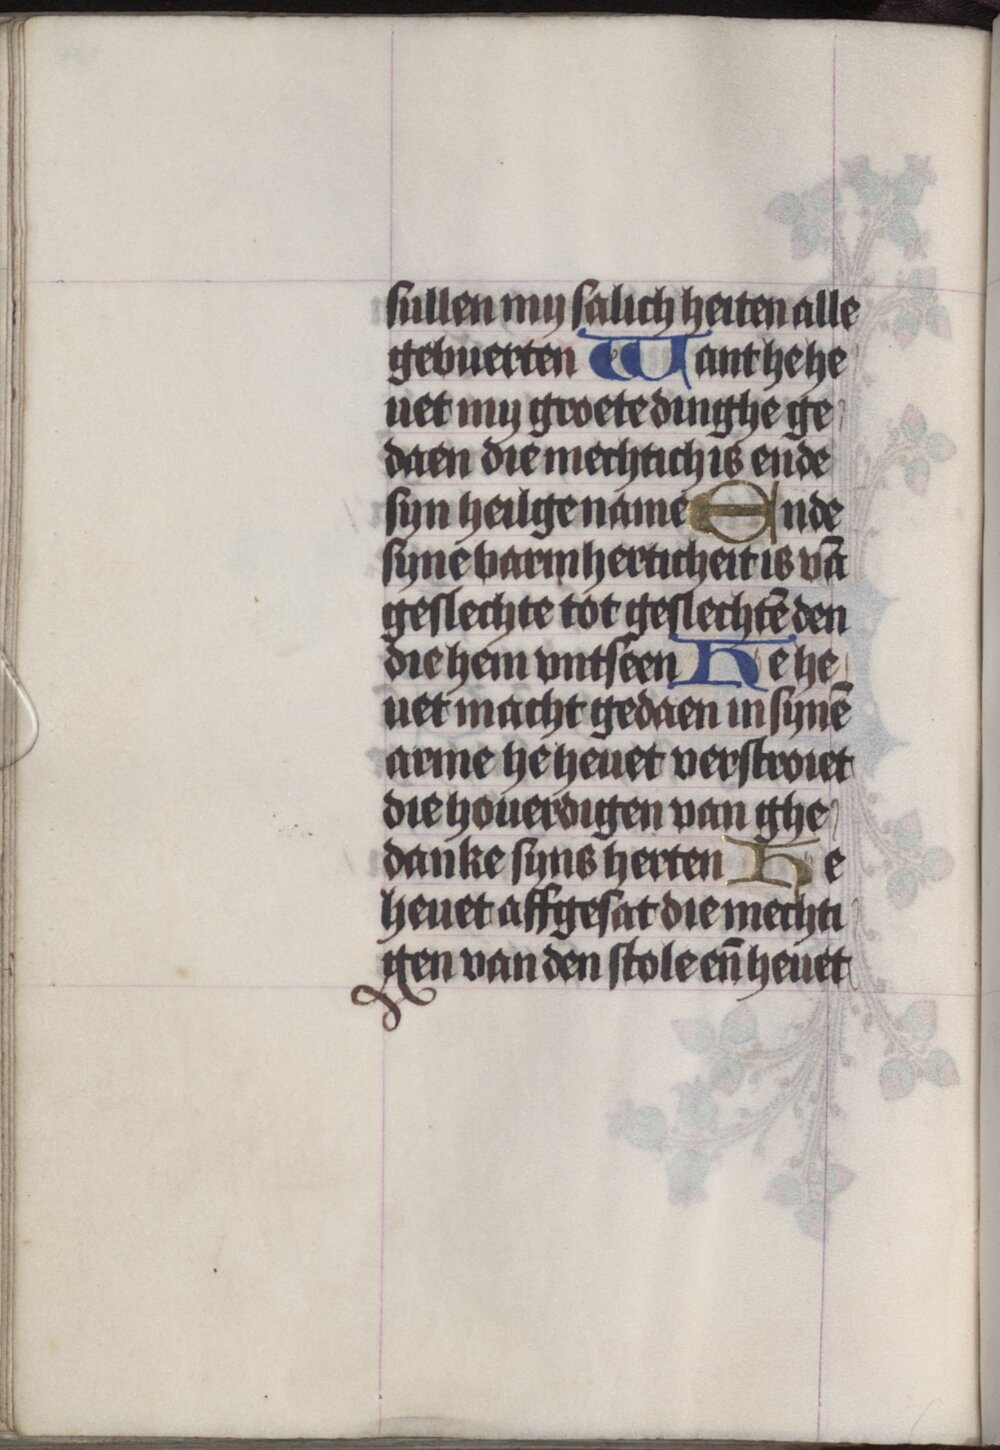 sullen my salich heiten alle
gebuerten Want he he
uet my groete dinghe ge
daen die mechtich is ende
syn heilge name Ende
syne barmherticheit is vā
geslechte tot geslechtē den
die hem vntseen He he
uet macht gedaen in synē
arme he heuet verstroiet
die houerdigen van ghe
danke syns herten He
heuet affgesat die mechti
gen van den stole en̄ heuet